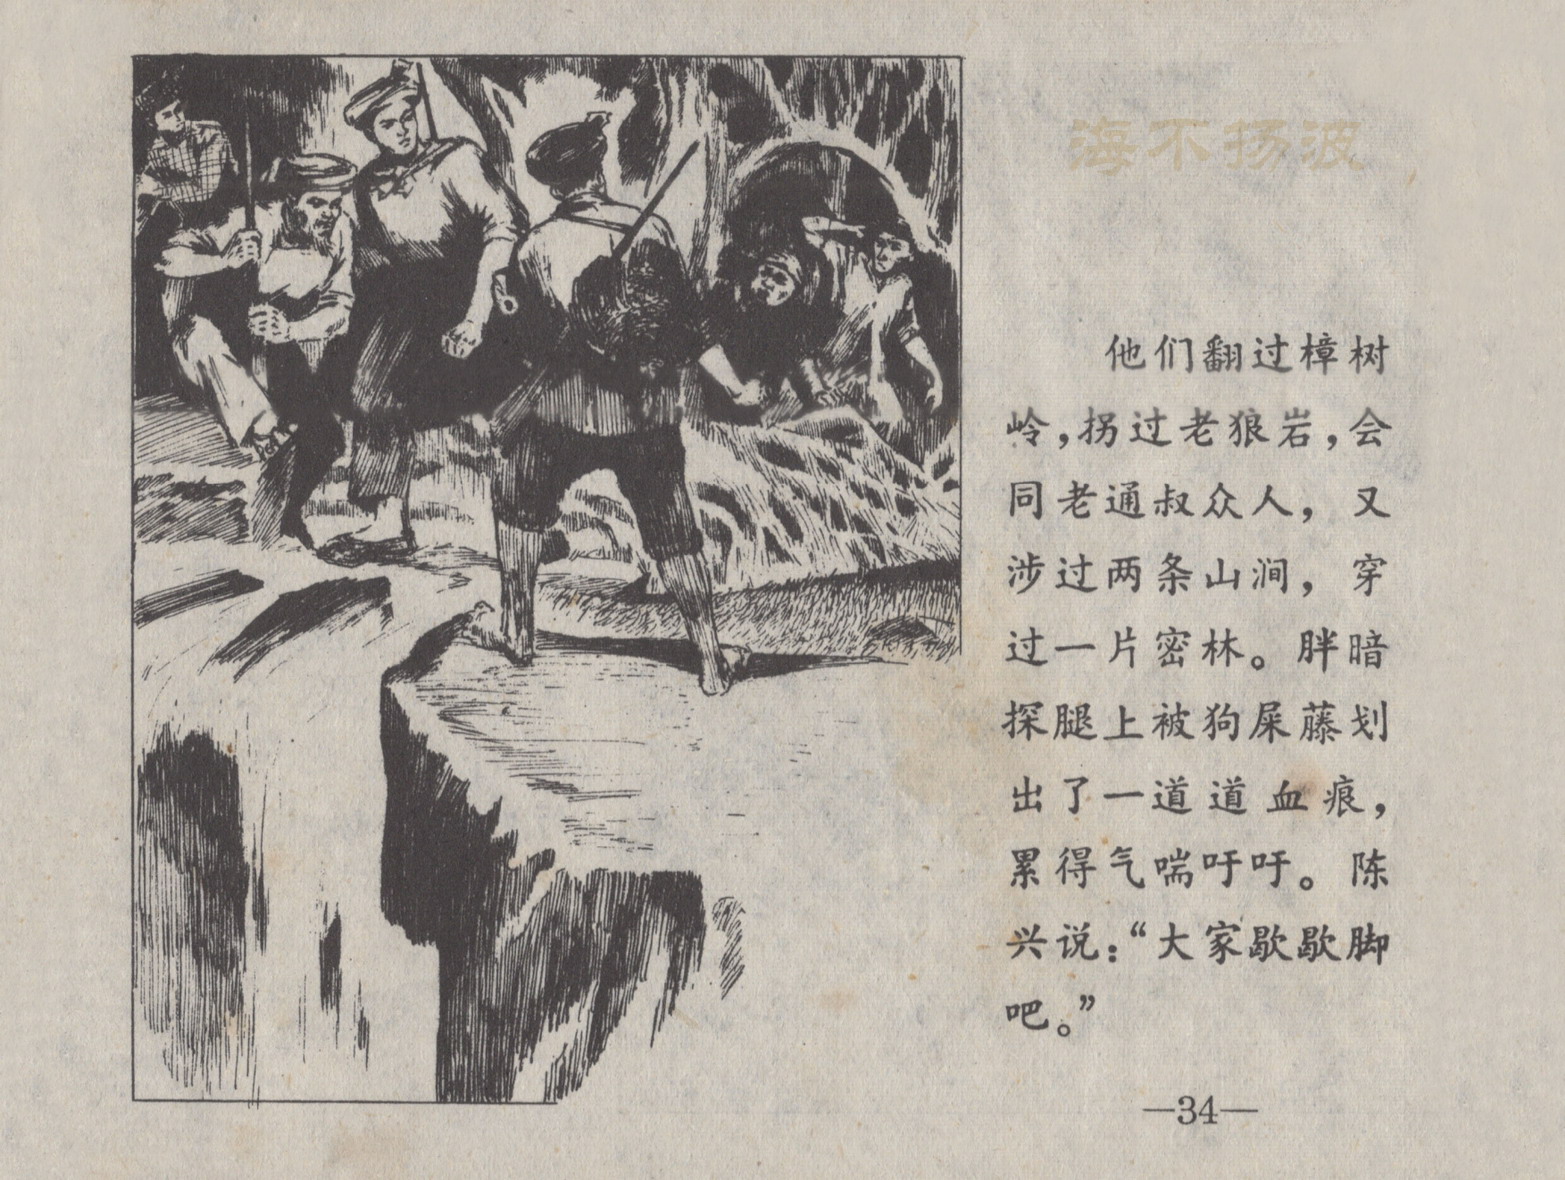 海不扬波
他们翻过樟树
岭，拐过老狼岩，会
同老通叔众人，又
涉过两条山涧，穿
过一片密林。胖暗
探腿上被狗屎藤划
出了一道道血痕，
累得气喘吁吁。陈
兴说：“大家歇歇脚
吧。”
—34—